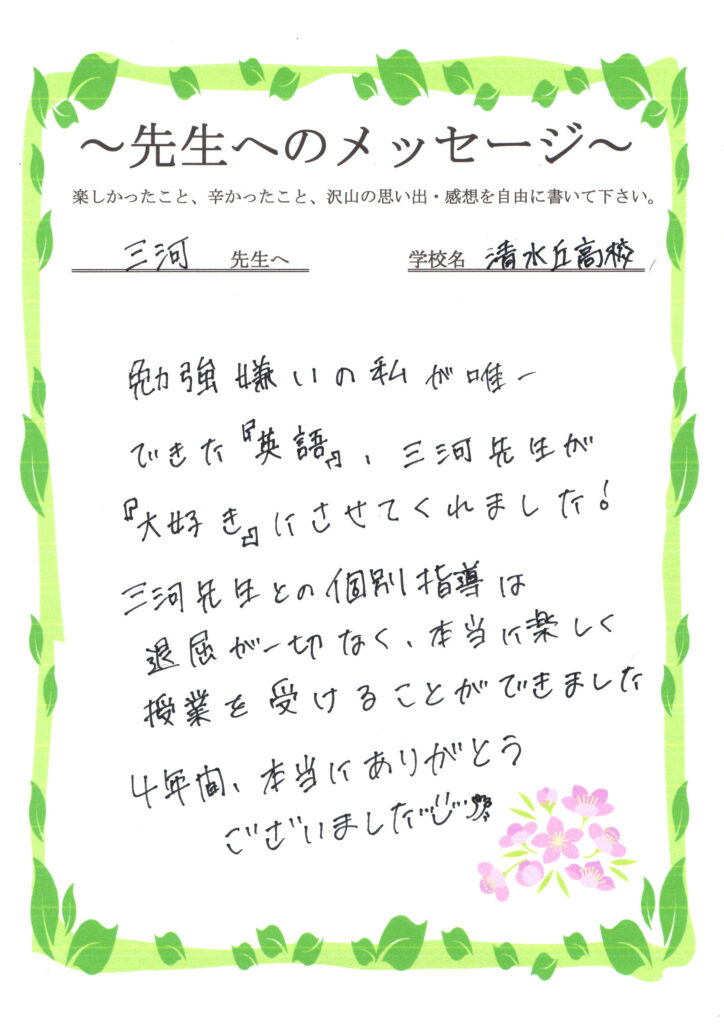 ～先生へのメッセージ～
楽しかったこと、辛かったこと、沢山の思い出・感想を自由に書いて下さい。
三河 先生へ 学校名 清水丘高校
勉強嫌いの私が唯一
できた『英語』、三河先生が
『大好き』にさせてくれました!
三河先生との個別指導は
退屈が一切なく、本当に楽しく
授業を受けることができました
4年間、本当にありがとう
ございました